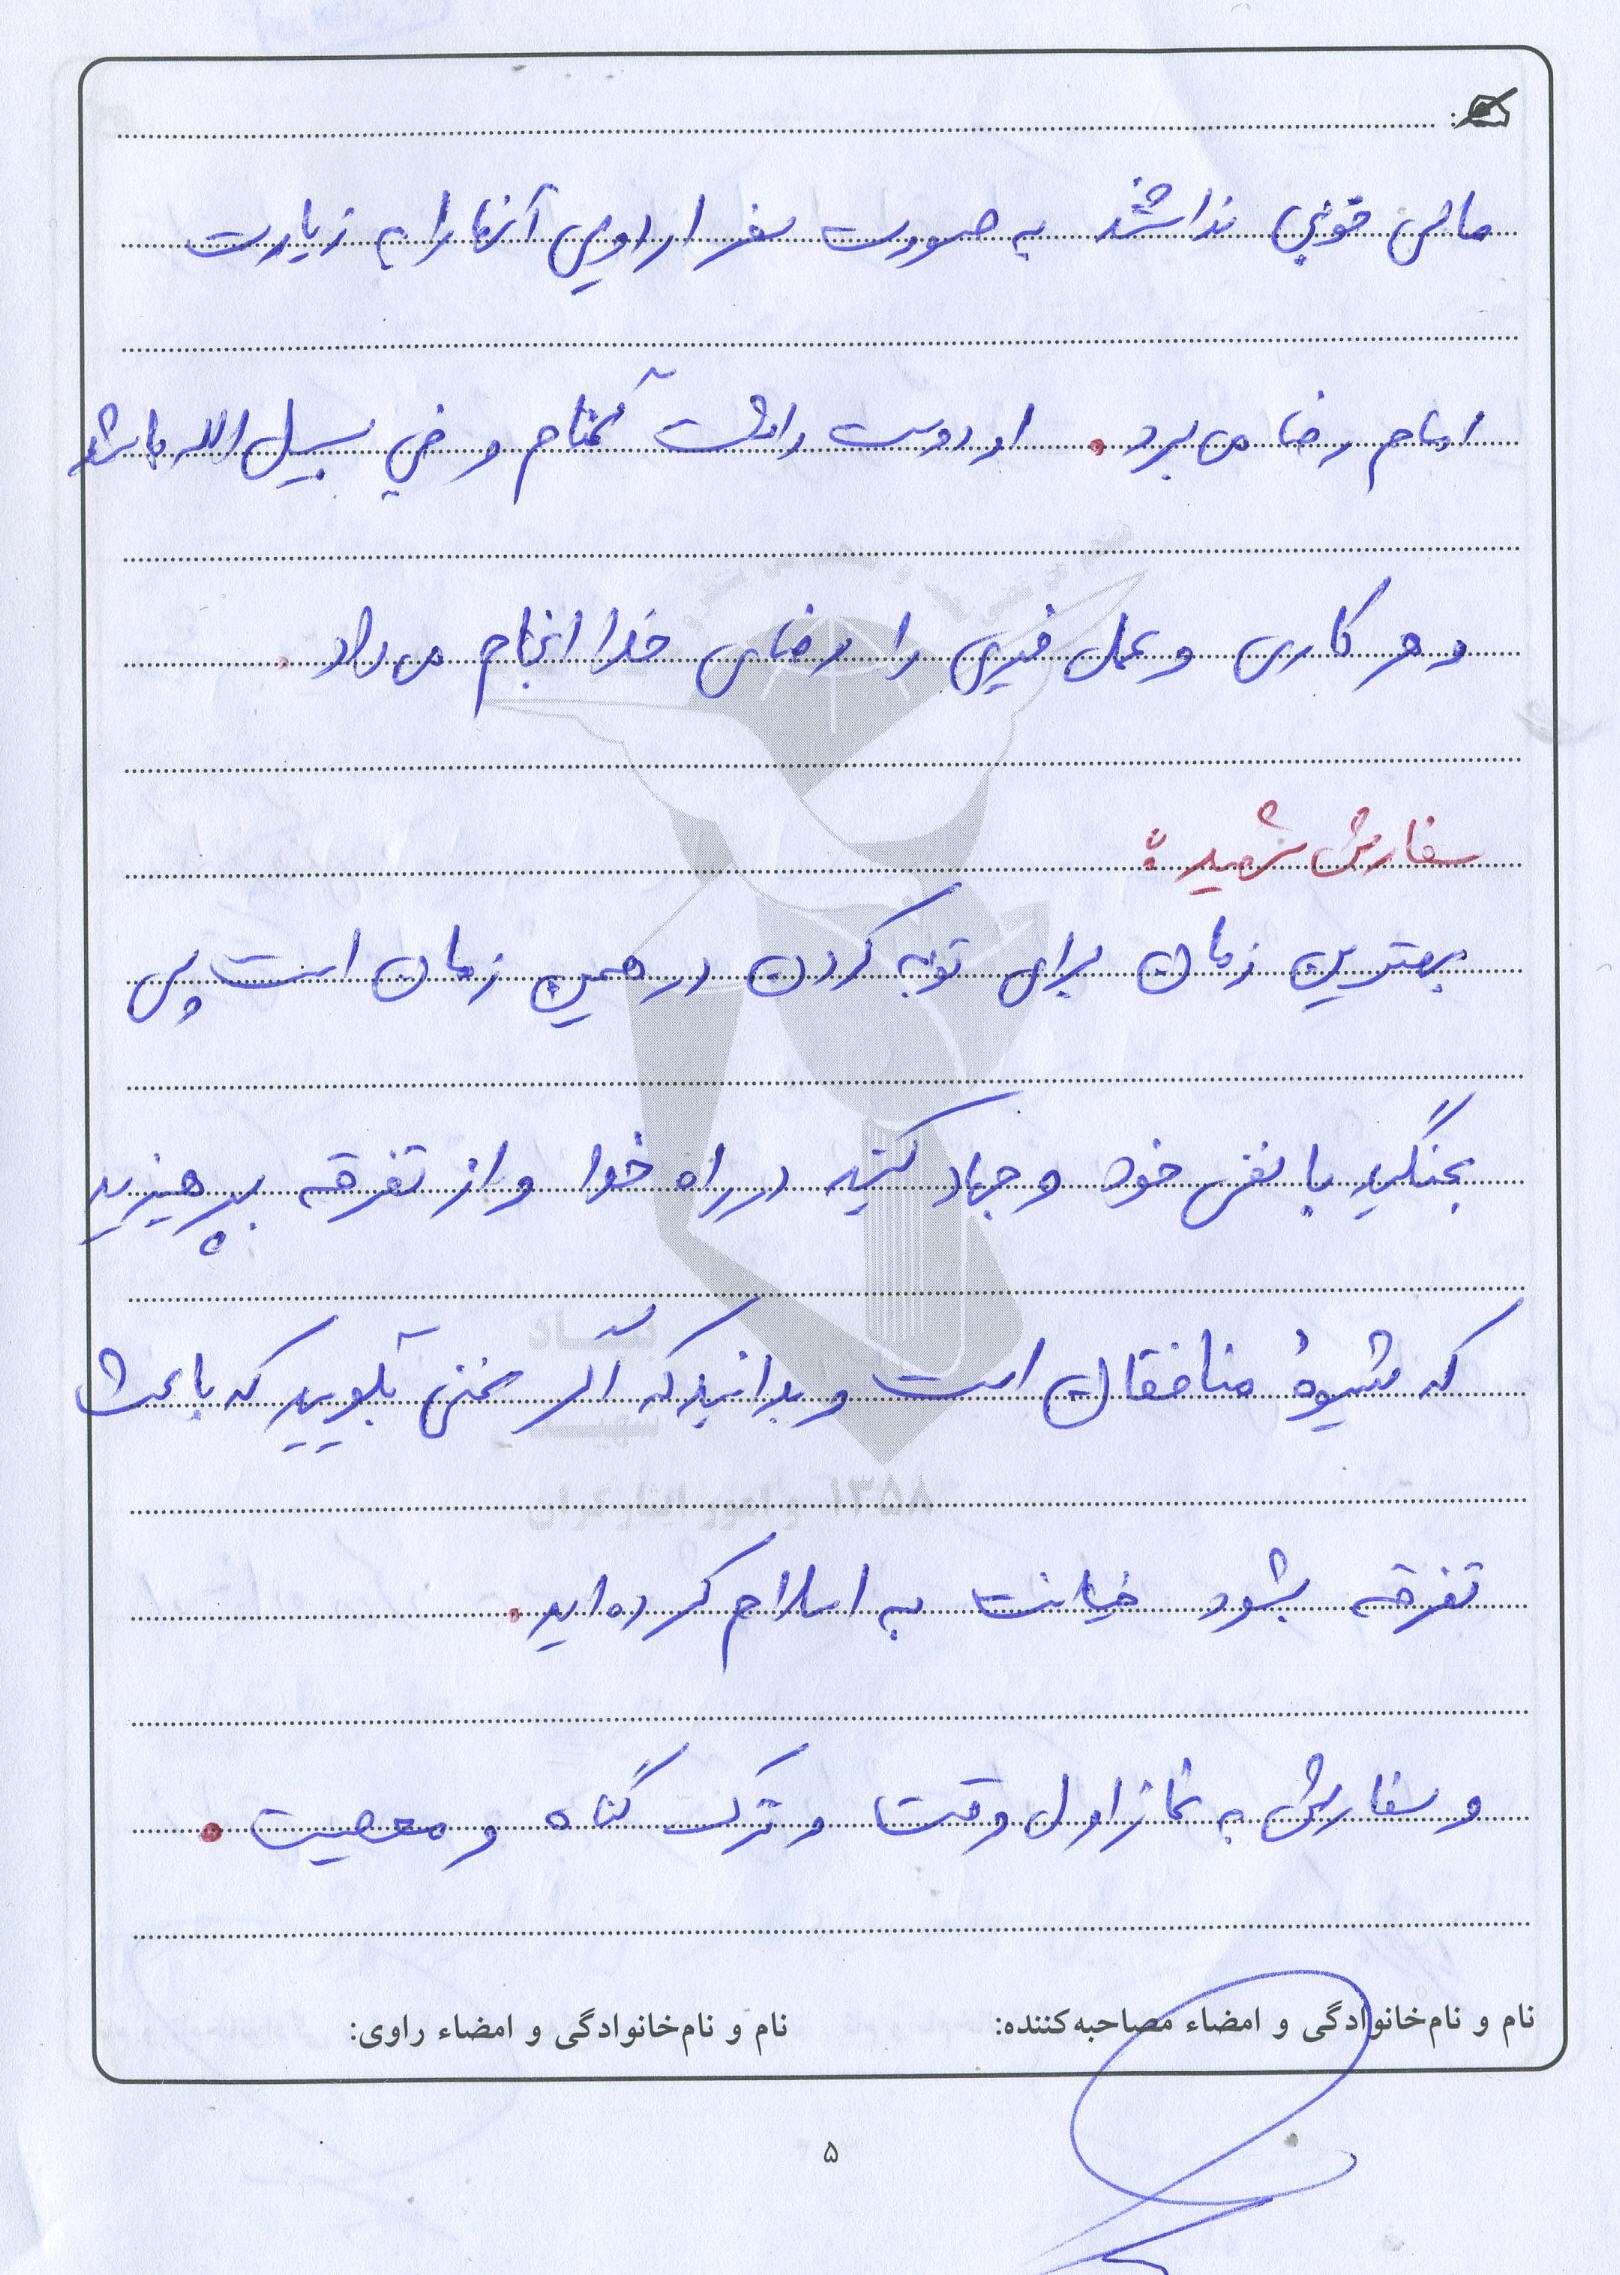 مالی خوبی نداشتند به صورت سفر اردویی آنها را به زیارت
امام رضا می برد. او دوست داشت گمنام و فی سبیل الله باشد
و هر کاری و عمل خیری را رضای خدا انجام می داد.
سفارش شهید:
بهترین زمان برای توبه کردن در همین زمان است پس
بجنگید با نفس خود و جهاد کنید در راه خدا و از تفرقه بپرهیزید
که شیوهٔ منافقان است و بدانید که اگر سخنی بگویید که باعث
تفرقه بشود خیانت به اسلام کرده اید.
و سفارش به نماز اول وقت و ترک گناه و معصیت.
بنیاد
شهید
و امور ایثارگران ۱۳۵۸
نام و نام‌خانوادگی و امضاء مصاحبه‌کننده: نام و نام‌خانوادگی و امضاء راوی:
۵